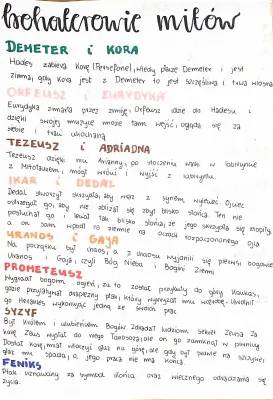 Bohaterowie mitów
DEMETER i KORA
Hades zabiera Korę (Persefonę), wtedy płacze Demeter i jest
zimna, gdy Kora jest z Demeter to jest szczęśliwa i trwa wiosna
ORFEUSZ i EURYDYKA
Eurydyka zmarła przez żmiję, Orfeusz idzie do Hadesu i
dzięki swojej muzyce może tam wejść, ogląda się za
siebie i traci ukochaną
TEZEUSZ i ADRIADNA
Tezeusz dzięki nici Arianny, po stoczeniu walki w labiryncie
z Minotaurem, mógł wrócić i wyjść z labiryntu.
IKAR i DEDAL
Dedal stworzył skrzydła, aby wraz z synem wylecieć Ojciec
ostrzegał go, aby nie zbliżał się zbyt blisko słońca. Ten nie
posłuchał go i leciał tak blisko słońca, że jego skrzydła się
a on sam wpadł na ziemię na oczach rozpaczonego ojca
URANOS i GAJA
Na początku był chaos, a z chaosu wyłonili się pierwsi bogowie
Uranos i Gaja, czyli Bóg Nieba i Bogini Ziemi
PROMETEUSZ
Wykradł bogom, ogień, za to został przykuty do góry Kaukaz,
gdzie przylatywał drapieżny ptak, który wyżerał mu wątrobę. Uwolnił
go Herakles wykonując jedną ze swoich prac
SYZYF
Był królem i ulubieńcem Bogów. Zdradził ludziom sekret Zeusa. Za
karę Zeus wysłał do niego Tanatosa, ale on go zamknął w piwnicy.
Dostał karę, miał wtoczyć głaz na górę, ale gdy był prawie na szczycie,
głaz mu spadał, a jego praca nie ma końca.
FENIKS
Ptak uznawany za symbol słońca oraz wiecznego odradzania się
życia.